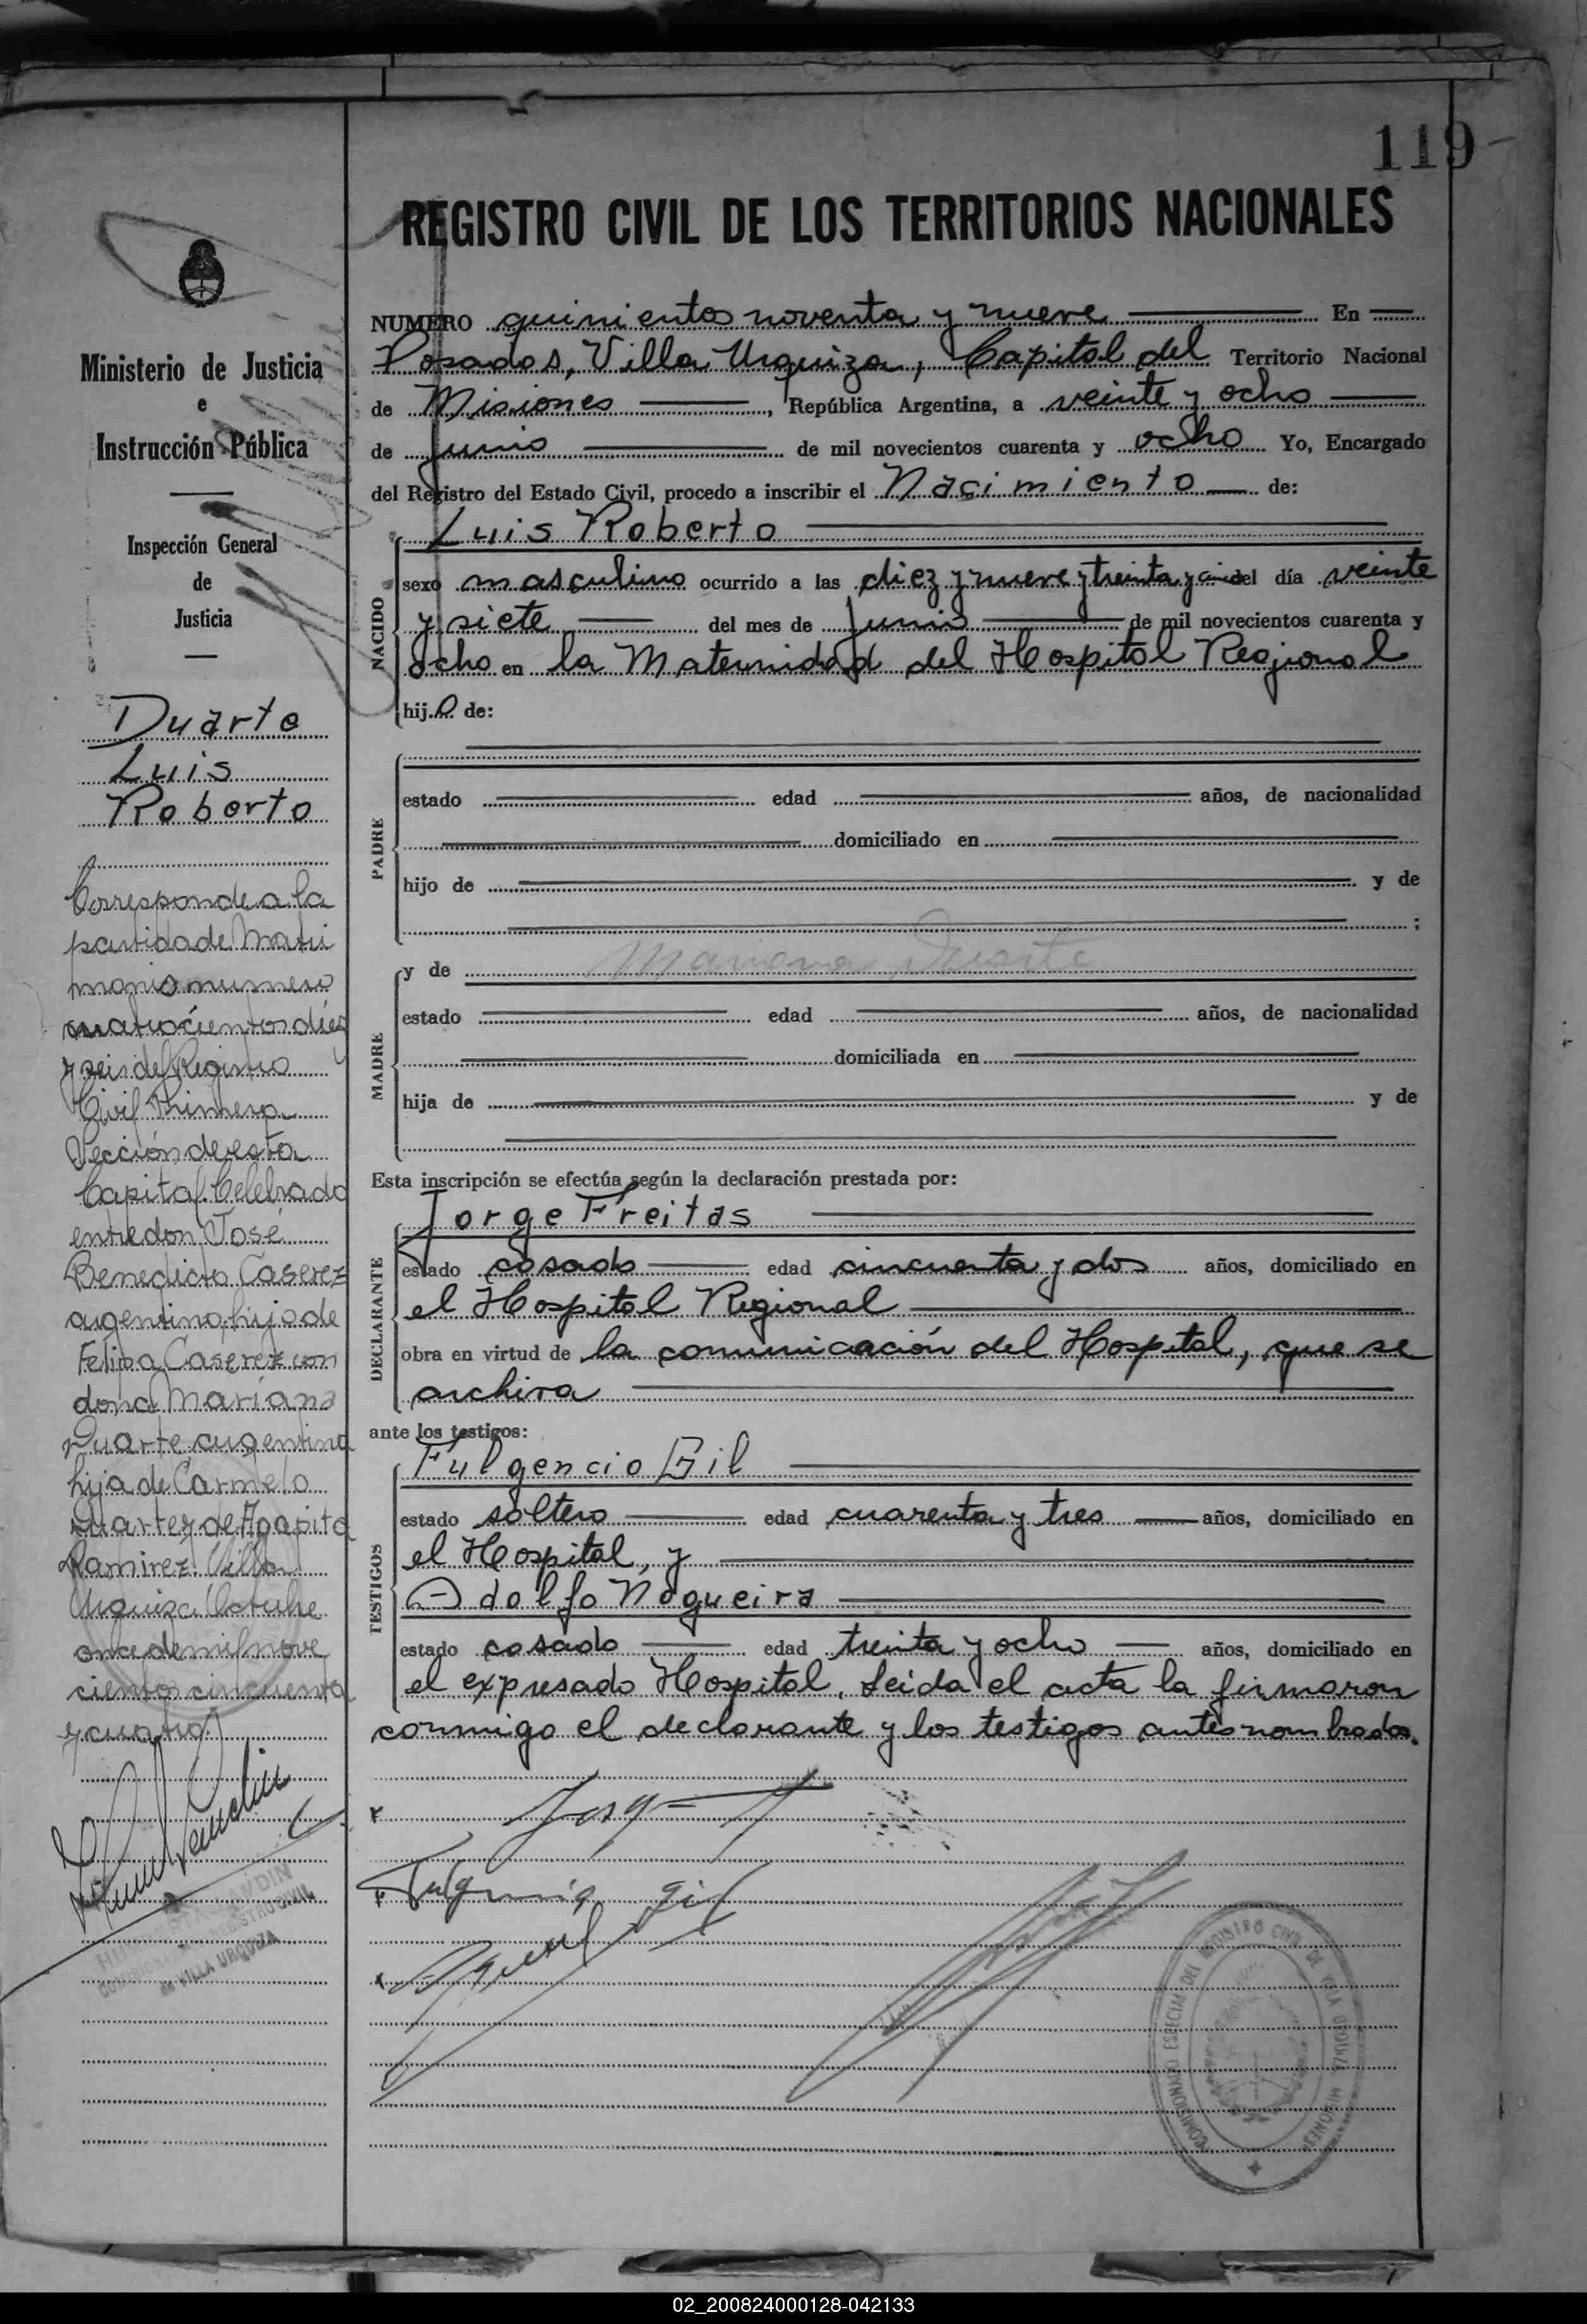 119
REGISTRO CIVIL DE LOS TERRITORIOS NACIONALES
Ministerio de Justicia
e
Instrucción Pública
Inspección General
de
Justicia
Duarte
Luis
Roberto
Corresponde a la
partida de Matri
monio numero
cuatrocientos diez
y seis del Registro
Civil Primera
Sección de esta
Capital. Celebrado
entre don José
Benedicto Caserez
argentino hijo de
Felipa Caserez con
dona Mariana
Duarte argentina
hija de Carmelo
Duarte y de Agapita
Ramirez. Villa
Urquiza Octubre
once de mil nove
cientos cincuenta
y cuatro.
VILLA URQUIZA
NUMERO quinientos noventa y nueve En
Posadas, Villa Urquiza, Capital del Territorio Nacional
de Misiones, República Argentina, a veinte y ocho
de Junio de mil novecientos cuarenta y ocho Yo, Encargado
del Registro del Estado Civil, procedo a inscribir el Nacimiento de:
NACIDO
Luis Roberto
sexo masculino ocurrido a las diez y nueve y treinta y del día veinte
y siete del mes de Junio de mil novecientos cuarenta y
ocho en la Maternidad del Hospital Regional
hijo de:
PADRE
estado edad años, de nacionalidad
domiciliado en
hijo de y de
;
MADRE
y de Mariana Duarte
estado edad años, de nacionalidad
domiciliada en
hija de y de
Esta inscripción se efectúa según la declaración prestada por:
DECLARANTE
Jorge Freitas
estado casado edad cincuenta y dos años, domiciliado en
el Hospital Regional
obra en virtud de la comunicación del Hospital, que se
archiva
ante los testigos:
TESTIGOS
Fulgencio Gil
estado soltero edad cuarenta y tres años, domiciliado en
el Hospital, y
Adolfo Nogueira
estado casado edad treinta y ocho años, domiciliado en
el expresado Hospital. Leida el acta la firmaron
conmigo el declarante y los testigos antes nombrados.
COMISIONADO ESPECIAL DEL REGISTRO CIVIL DE VILLA URQUIZA MISIONES
02_200824000128-042133